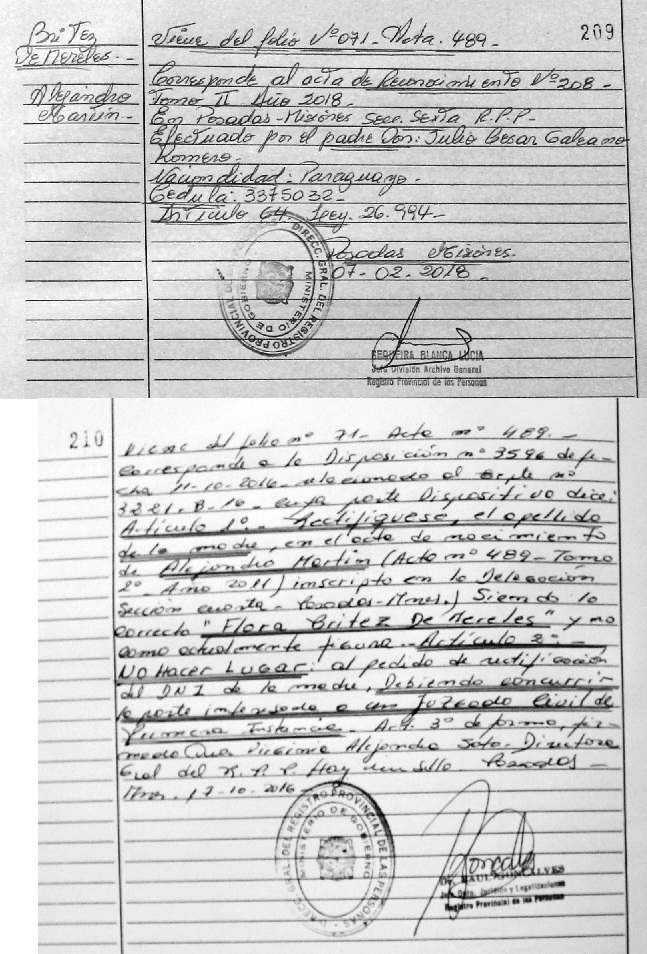 209
Britez
De Mereles.-
Alejandro
Martín.-
Viene del folio Nº 071- Acta. 489-
Corresponde al acta de Reconocimiento Nº 208-
Tomo II Año 2018-
En Posadas-Misiones Secc. Sexta R.P.P-
Efectuado por el padre Don: Julio Cesar Galeano
Romero.-
Nacionalidad: Paraguayo.-
Cedula: 3375032-
Artículo 64. Ley. 26.994-
Posadas Misiones.
07-02-2018-
DIRECC. GRAL. DEL REGISTRO PROVINCIAL DE
MINISTERIO DE GOBIERNO
SEQUEIRA BLANCA LUCIA
Jefa División Archivo General
Registro Provincial de las Personas
210
Viene del folio nº 71- Acta nº 489.-
Corresponde a la Disposición nº 3596 de fe-
cha 11-10-2016- relacionado al expte nº
3221-B-16- cuya parte Dispositivo dice:
Artículo 1º- Rectifiquese, el apellido
de la madre, en el acta de nacimiento
de Alejandro Martin (Acta nº 489- Tomo
2º- Año 2011) inscripto en la Delegación
Sección cuarta- Posadas-Mnes.) Siendo lo
correcto "Flora Britez De Mereles" y no
como actualmente figura.- Artículo 2º-
No Hacer Lugar: al pedido de rectificación
del DNI de la madre, Debiendo concurrir
la parte interesada a un Juzgado Civil de
Primera Instancia- Art. 3º de forma, fir-
mado Dra Virginia Alejandra Soto- Directora
Gral del R.P.P. Hay un sello- Posadas-
Mnes. 17-10-2016-
DIRECC. GRAL. DEL REGISTRO PROVINCIAL DE LAS PERSONAS
MINISTERIO DE GOBIERNO
Dr. RAUL GONCALVES
Registro Provincial de las Personas